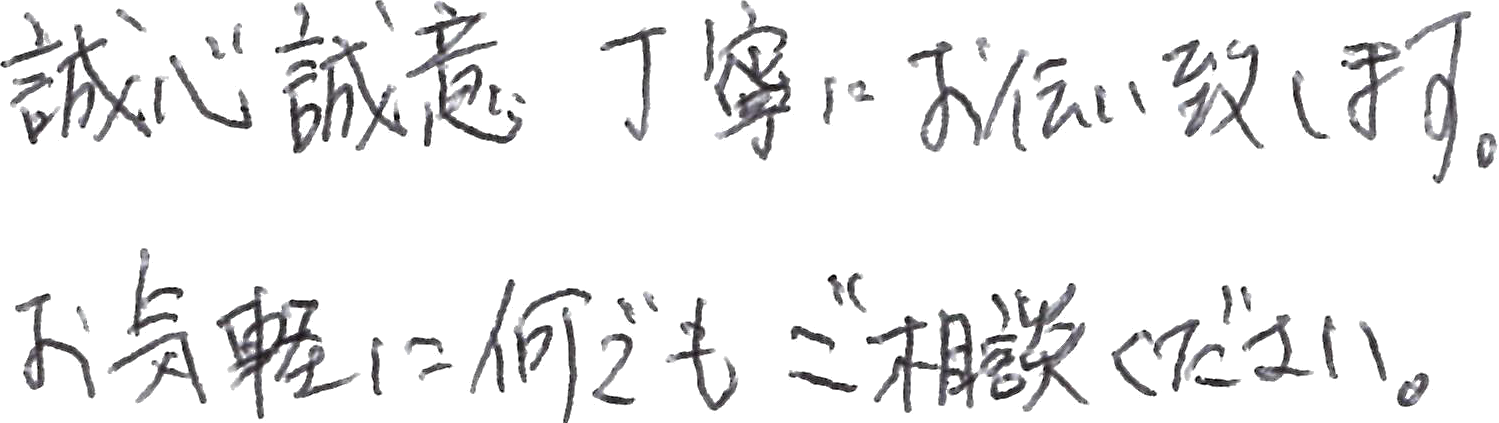 誠心誠意 丁寧にお伝い致します。
お気軽に何でもご相談ください。